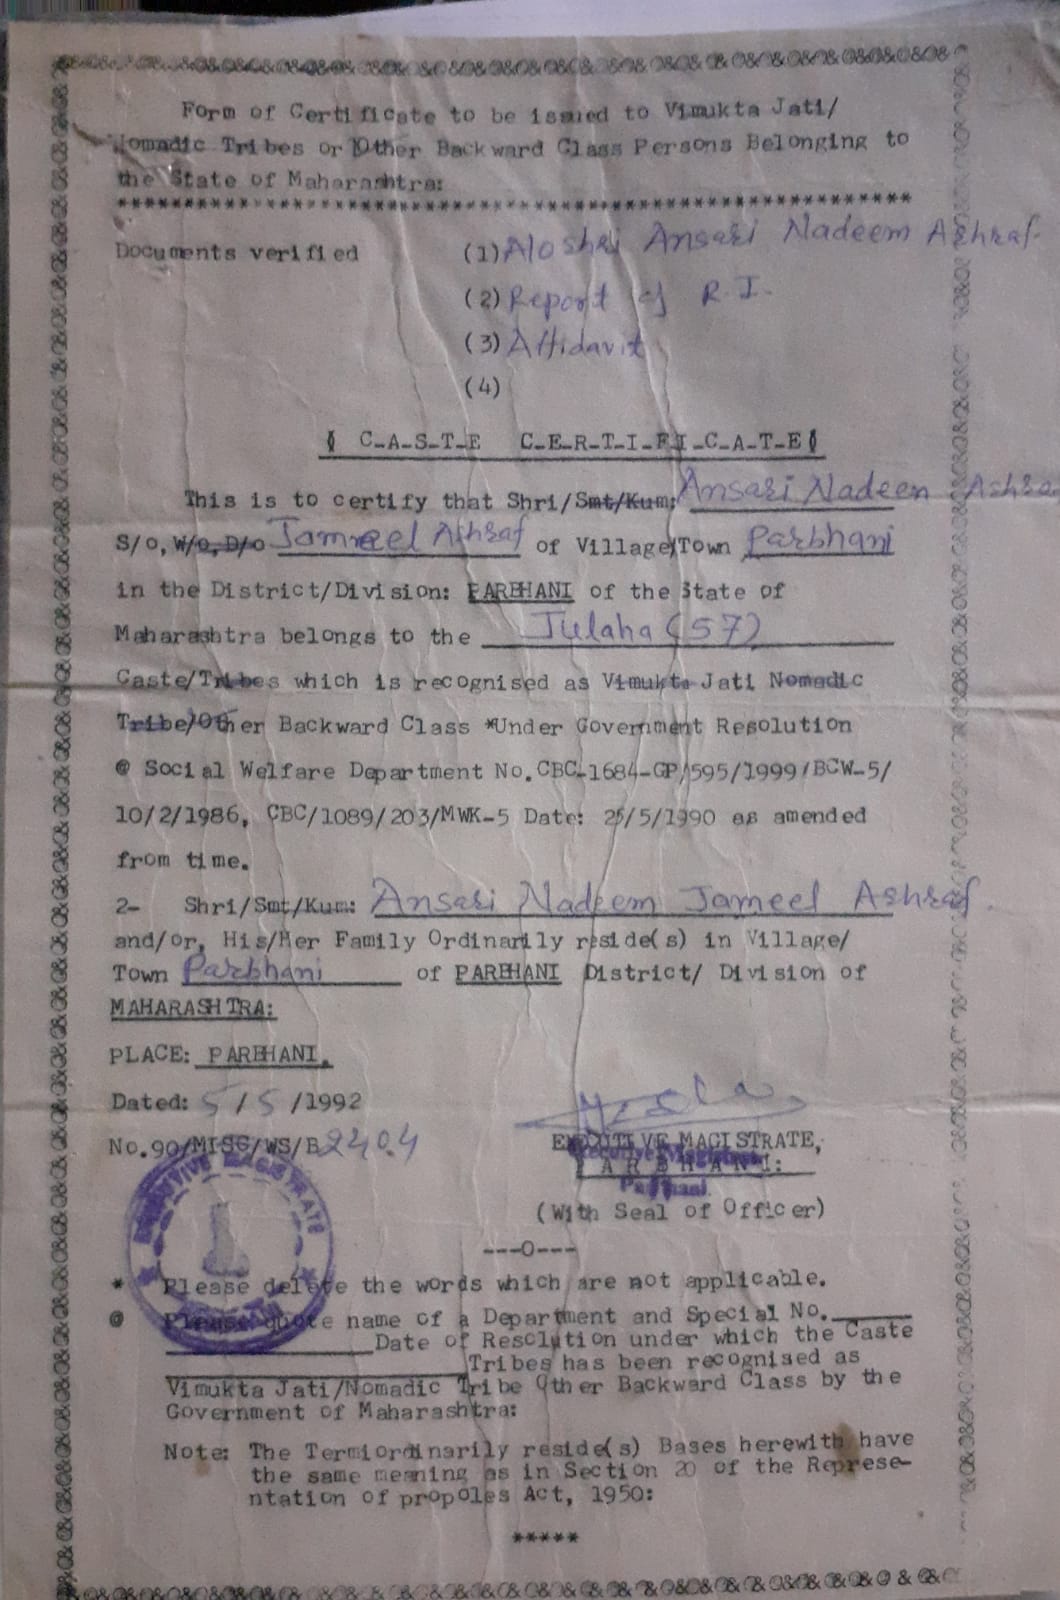 Form of Certificate to be issued to Vimukta Jati/
Nomadic Tribes or Other Backward Class Persons Belonging to
the State of Maharashtra:
************************************************************
Documents verified (1) A/o shri Ansari Nadeem Ashraf
(2) Report of R.I.
(3) Affidavit
(4)
C-A-S-T-E C-E-R-T-I-F-I-C-A-T-E
This is to certify that Shri/Smt/Kum: Ansari Nadeem Ashra
S/o, W/o, D/o Jameel Ashraf of Village/Town Parbhani
in the District/Division: PARBHANI of the State of
Maharashtra belongs to the Julaha (57)
Caste/Tribes which is recognised as Vimukta Jati Nomadic
Tribe/Other Backward Class *Under Government Resolution
@ Social Welfare Department No.CBC-1684-GP/595/1999/BCW-5/
10/2/1986, CBC/1089/203/MWK-5 Date: 25/5/1990 as amended
from time.
2- Shri/Smt/Kum: Ansari Nadeem Jameel Ashraf.
and/or, His/Her Family Ordinarily reside(s) in Village/
Town Parbhani of PARBHANI District/ Division of
MAHARASHTRA:
PLACE: PARBHANI.
Dated: 5/5/1992
No.90/MISC/WS/B 2404
EXECUTIVE MAGISTRATE,
Executive Magistrate
PARBHANI:
Parbhani.
(With Seal of Officer)
EXECUTIVE MAGISTRATE
---0---
* Please delete the words which are not applicable.
@ Please quote name of a Department and Special No.______
__________Date of Resolution under which the Caste
__________Tribes has been recognised as
Vimukta Jati/Nomadic Tribe Other Backward Class by the
Government of Maharashtra:
Note: The Termiordinarily reside(s) Bases herewith have
the same meaning as in Section 20 of the Represe-
ntation of propoles Act, 1950:
*****